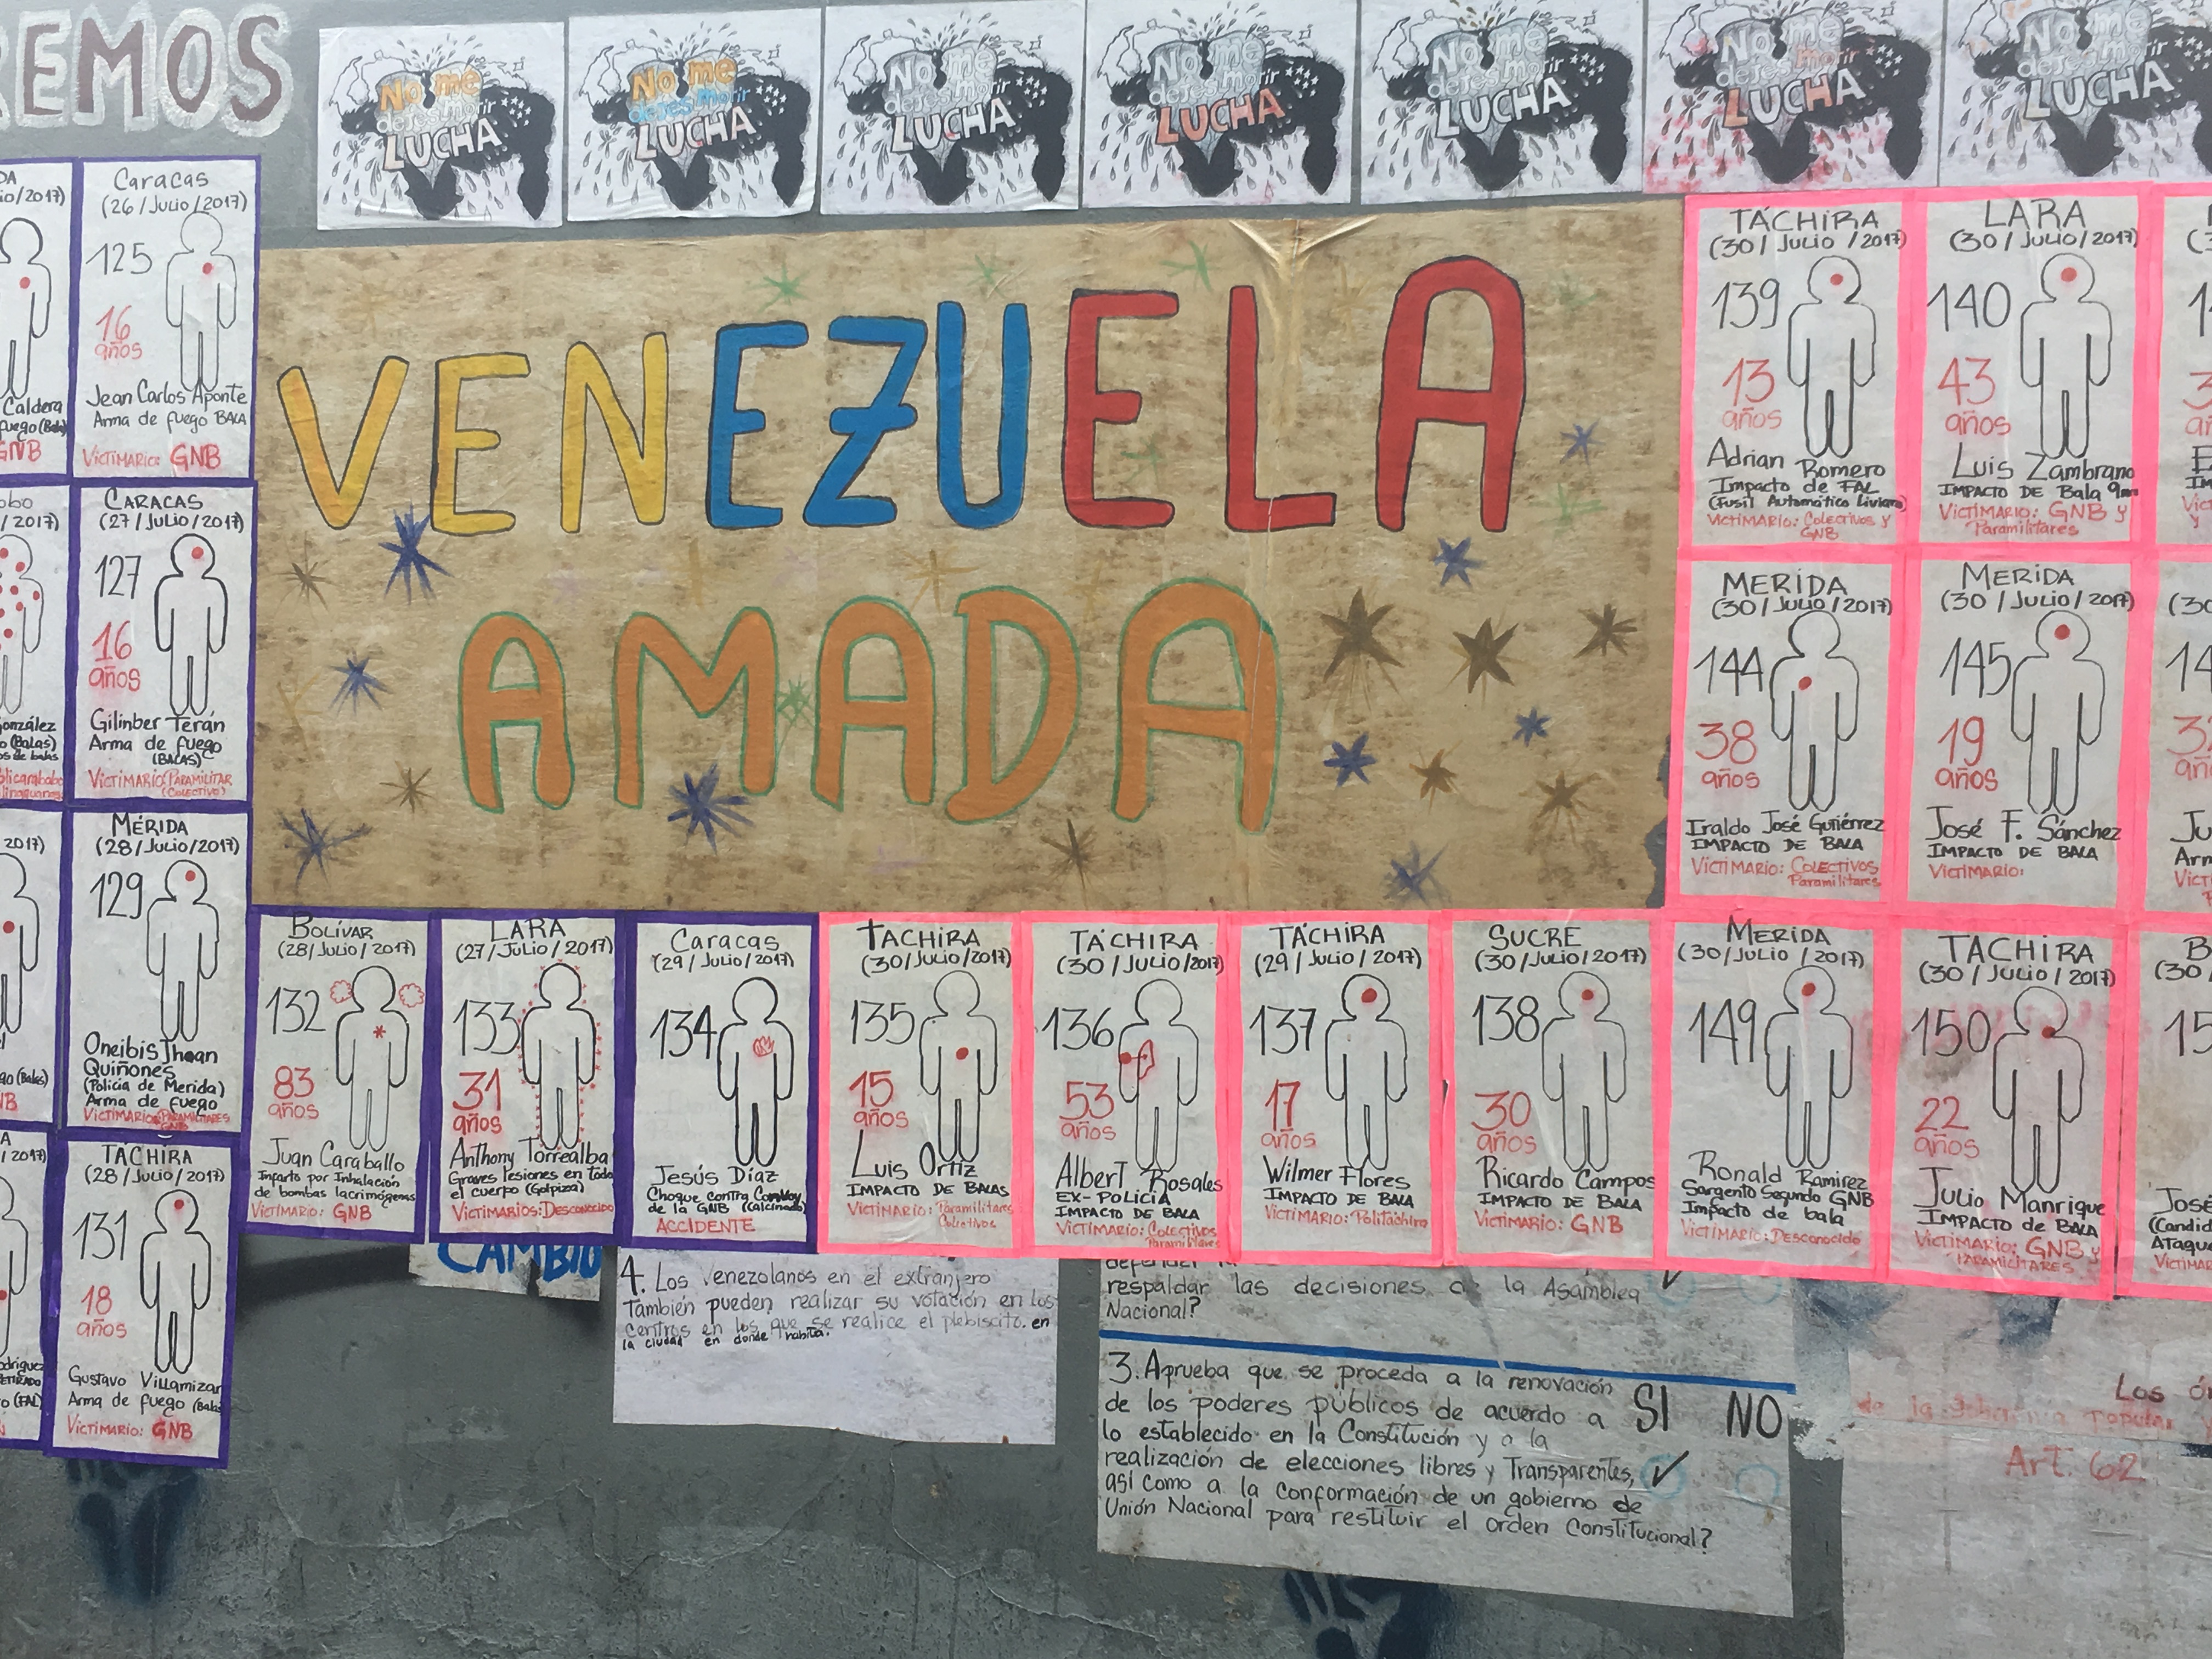 REMOS
No me
dejes morir
LUCHA
No me
dejes morir
LUCHA
No me
dejes morir
LUCHA
No me
dejes morir
LUCHA
No me
dejes morir
LUCHA
No me
dejes morir
LUCHA
No me
dejes morir
LUCHA
VENEZUELA
AMADA
Caldera
GNB
Caracas
(26/Julio/2017)
125
16
años
Jean Carlos Aponte
Arma de fuego BALA
Victimario: GNB
/2017)
González
(Balas)
CARACAS
(27/Julio/2017)
127
16
años
Gilinber Terán
Arma de fuego
(BALAS)
Victimario: PARAMILITAR
(Colectivo)
2017)
MÉRIDA
(28/Julio/2017)
129
Oneibis Jhoan
Quiñones
(Policia de Merida)
Arma de fuego
Victimario: PARAMILITARES
GNB
TÁCHIRA
(28/Julio/2017)
131
18
años
Gustavo Villamizar
Arma de fuego (Bala
Victimario: GNB
BOLÍVAR
(28/Julio/2017)
132
83
años
Juan Caraballo
Infarto por Inhalación
de bombas lacrimógenas
Victimario: GNB
LARA
(27/Julio/2017)
133
31
años
Anthony Torrealba
Graves lesiones en todo
el cuerpo (Golpiza)
Victimarios: Desconocido
Caracas
(29/Julio/2017)
134
Jesús Díaz
Choque contra Convoy
de la GNB (Calcinado)
ACCIDENTE
TACHIRA
(30/Julio/2017)
135
15
años
Luis Ortiz
IMPACTO DE BALAS
Victimario: Paramilitares
Colectivos
TÁCHIRA
(30/Julio/2017)
136
53
años
Albert Rosales
EX-POLICIA
IMPACTO DE BALA
Victimario: Colectivos
Paramilitares
TÁCHIRA
(29/Julio/2017)
137
17
años
Wilmer Flores
IMPACTO DE BALA
Victimario: Politáchira
SUCRE
(30/Julio/2017)
138
30
años
Ricardo Campos
IMPACTO DE BALA
Victimario: GNB
TÁCHIRA
(30/Julio/2017)
139
13
años
Adrian Romero
Impacto de FAL
(Fusil Automático Liviano)
Victimario: Colectivos y
GNB
LARA
(30/Julio/2017)
140
43
años
Luis Zambrano
IMPACTO DE Bala 9mm
Victimario: GNB y
Paramilitares
MERIDA
(30/Julio/2017)
144
38
años
Iraldo José Gutiérrez
IMPACTO DE BALA
Victimario: Colectivos
Paramilitares
MERIDA
(30/Julio/2017)
145
19
años
José F. Sánchez
IMPACTO DE BALA
Victimario:
MERIDA
(30/Julio/2017)
149
Ronald Ramirez
Sargento Segundo GNB
Impacto de bala
Victimario: Desconocido
TACHIRA
(30/Julio/2017)
150
22
años
Julio Manrique
IMPACTO de BALA
Victimario: GNB y
PARAMILITARES
José
(Candid
Ataque
CAMBIO
4. Los venezolanos en el extranjero
También pueden realizar su votación en los
centros en los que se realice el plebiscito. en
la ciudad en donde habita.
respaldar las decisiones de la Asamblea
Nacional?
3. Aprueba que se proceda a la renovación
de los poderes públicos de acuerdo a SI NO
lo establecido en la Constitución y a la
realización de elecciones libres y Transparentes,
así como a la conformación de un gobierno de
Unión Nacional para restituir el orden Constitucional?
Los ór
de la soberanía popular
Art. 62